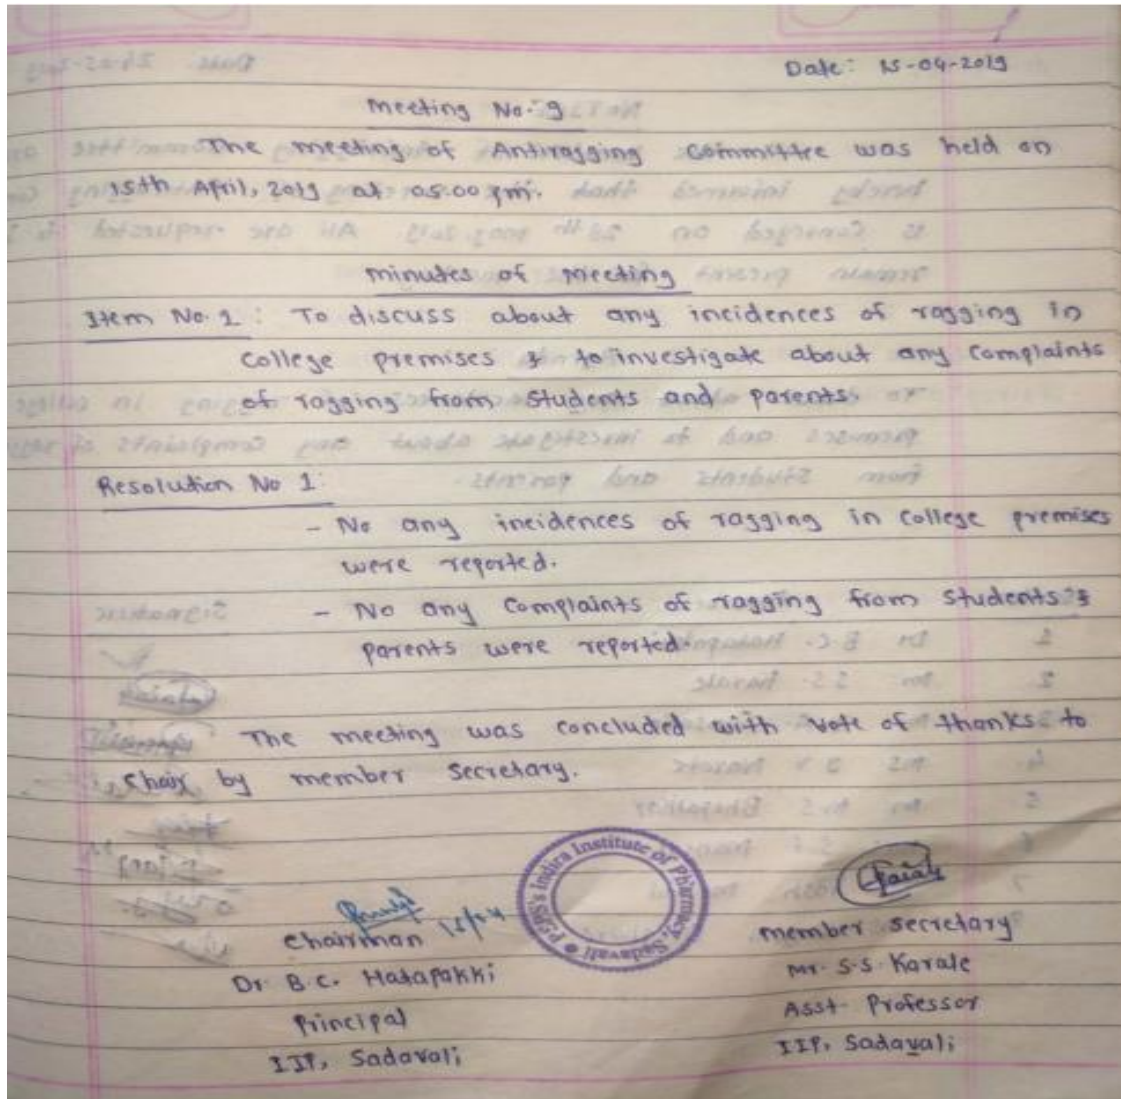 Date: 15-04-2019
Meeting No. 9
The meeting of Antiragging committee was held on
15th April, 2019 at 05.00 pm.
Minutes of Meeting
Item No. 1: To discuss about any incidences of ragging in
College premises & to investigate about any complaints
of ragging from students and parents.
Resolution No 1:
- No any incidences of ragging in college premises
were reported.
- No any complaints of ragging from students &
parents were reported.
The meeting was concluded with vote of thanks to
Chair by member secretary.
P.S.P.S's Indira Institute of Pharmacy, Sadavali
Chairman 15/04
Dr. B.C. Hatapakki
Principal
IIP, Sadavali
member secretary
Mr. S.S. Karale
Asst. Professor
IIP, Sadavali